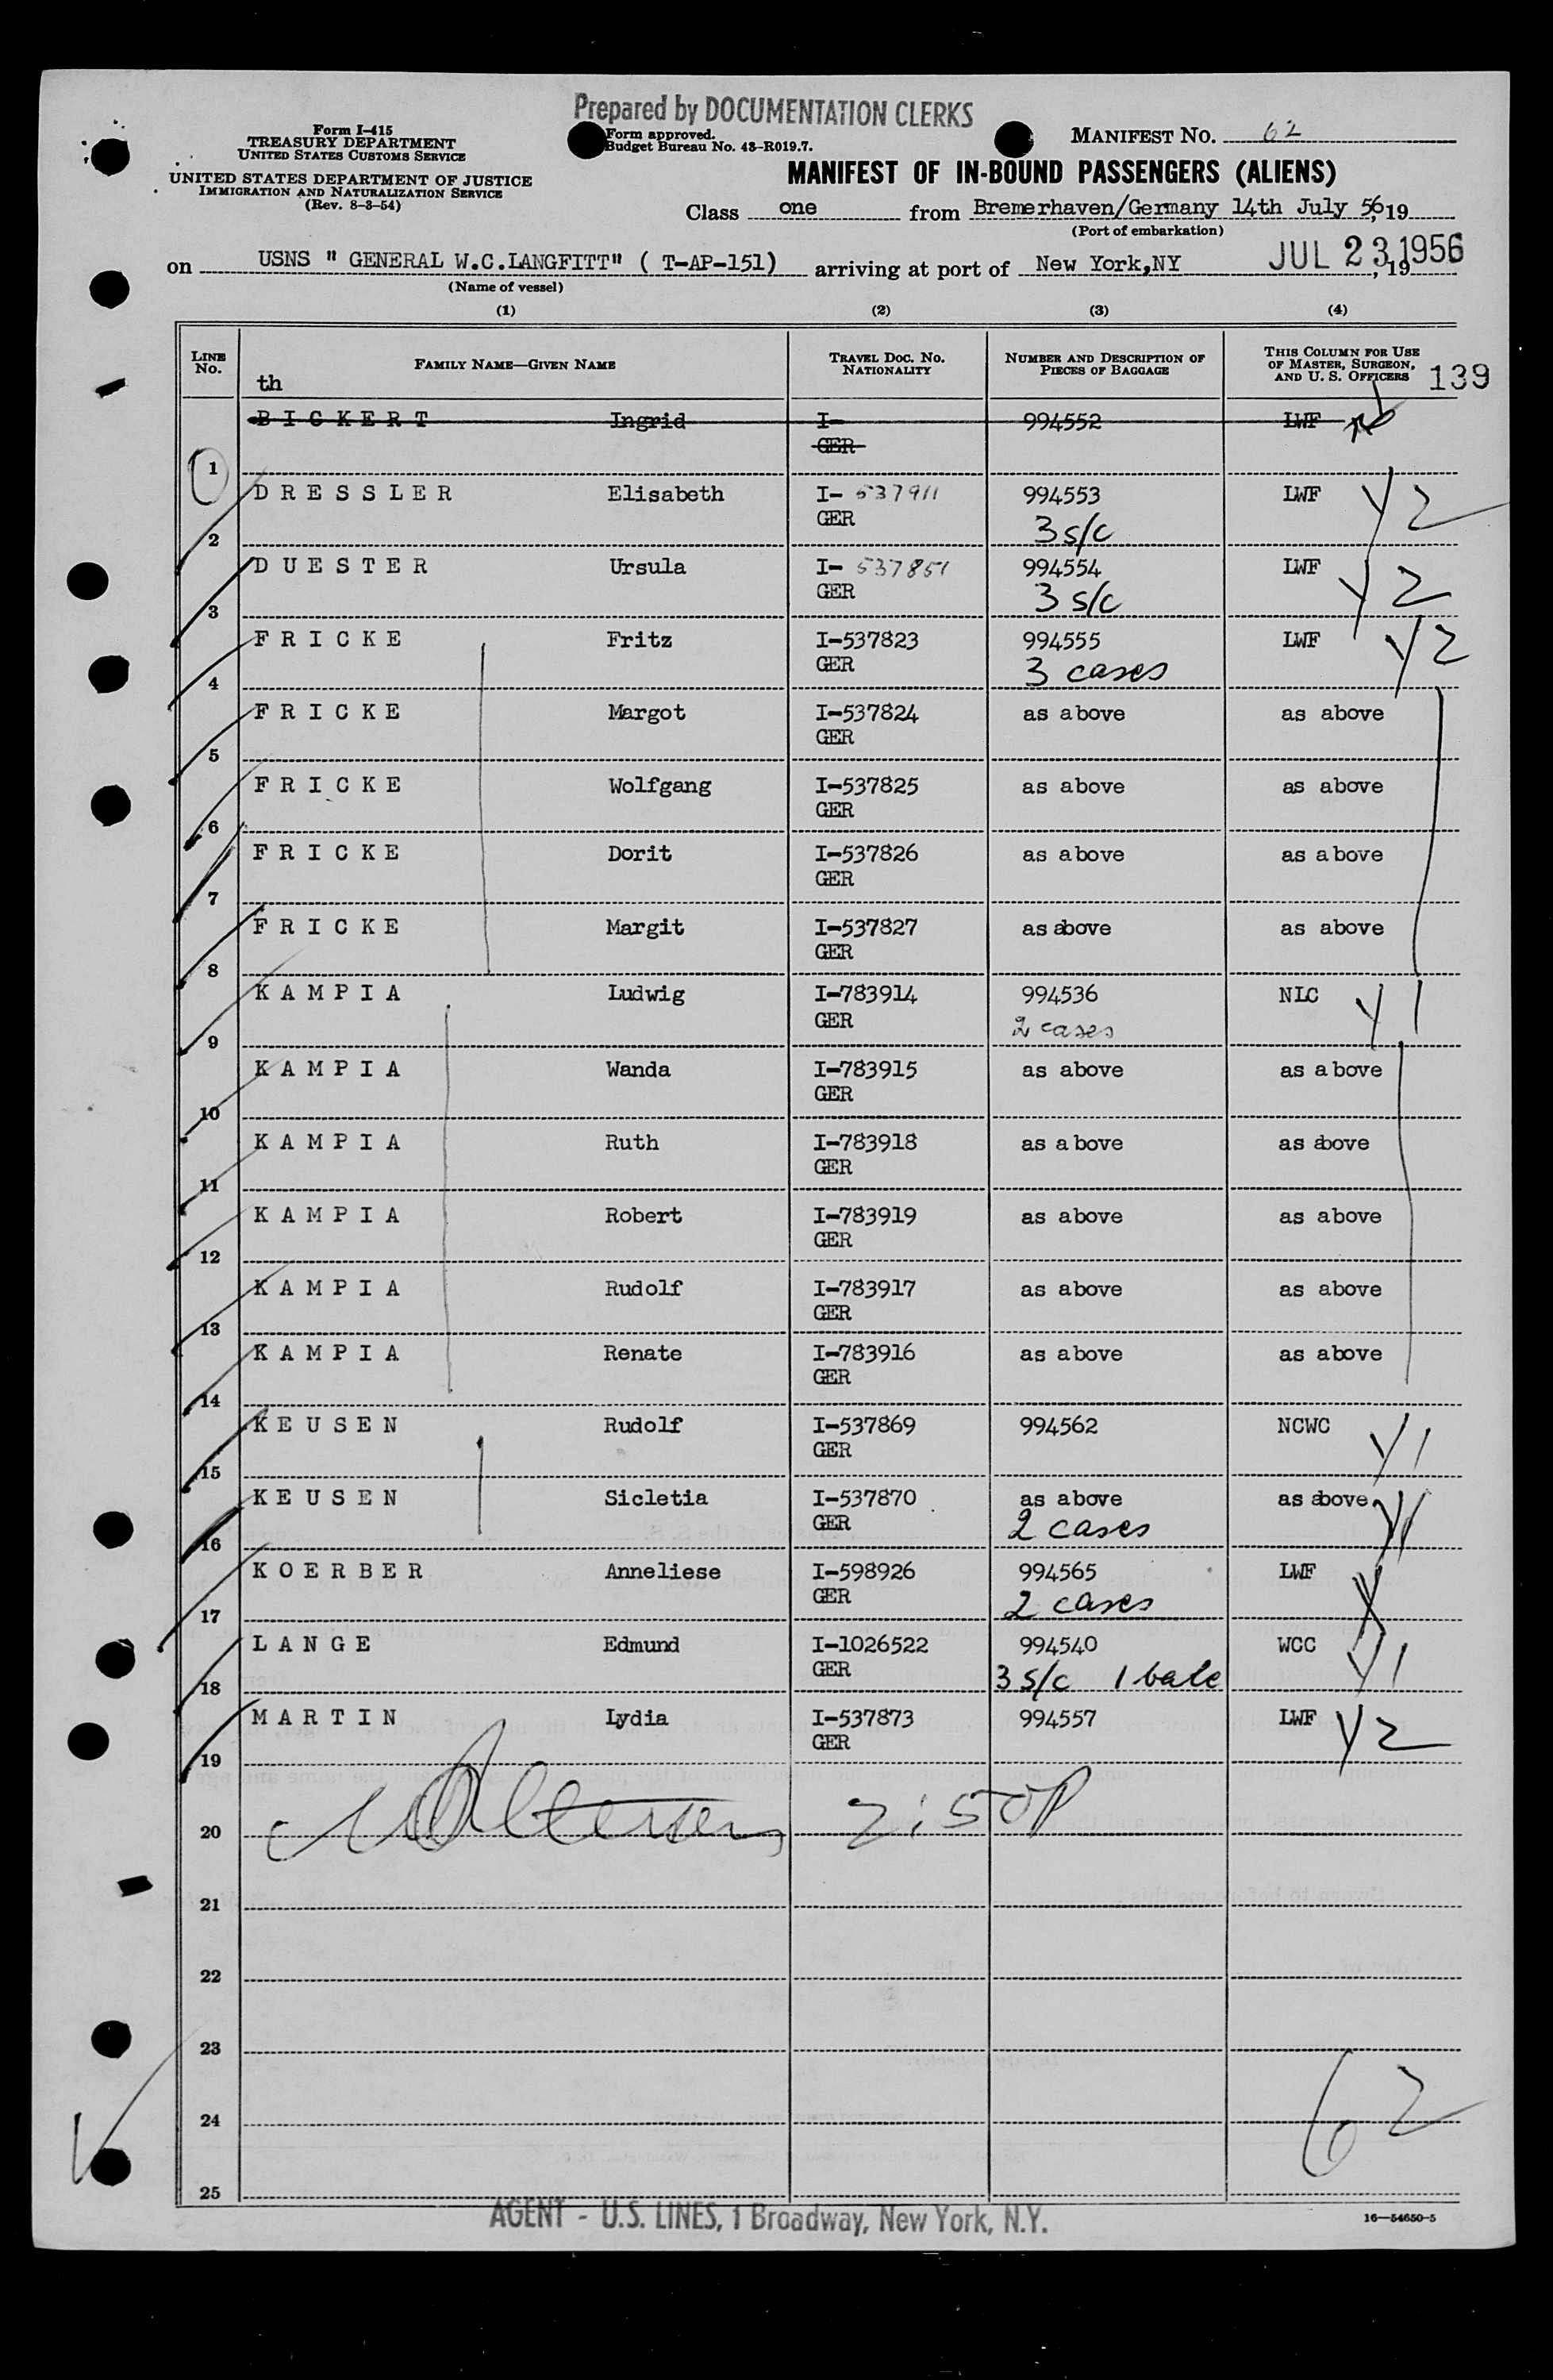 Prepared by DOCUMENTATION CLERKS
Form I-415
TREASURY DEPARTMENT
UNITED STATES CUSTOMS SERVICE
UNITED STATES DEPARTMENT OF JUSTICE
IMMIGRATION AND NATURALIZATION SERVICE
(Rev. 8-3-54)
Form approved.
Budget Bureau No. 43-R019.7.
MANIFEST NO. 62
MANIFEST OF IN-BOUND PASSENGERS (ALIENS)
Class one from Bremerhaven/Germany 14th July 56, 19
(Port of embarkation)
on USNS " GENERAL W.C.LANGFITT" ( T-AP-151) arriving at port of New York,NY JUL 23 1956, 19
(Name of vessel)
(1) (2) (3) (4)
LINE No. FAMILY NAME—GIVEN NAME TRAVEL DOC. No. NATIONALITY NUMBER AND DESCRIPTION OF PIECES OF BAGGAGE THIS COLUMN FOR USE OF MASTER, SURGEON, AND U. S. OFFICERS 139
th
B I C K E R T Ingrid I- 994552 LWF
GER
1
D R E S S L E R Elisabeth I- 537911 994553 LWF Y2
GER 3 s/c
2
D U E S T E R Ursula I- 537851 994554 LWF Y2
GER 3 s/c
3
F R I C K E Fritz I-537823 994555 LWF Y2
GER 3 cases
4
F R I C K E Margot I-537824 as above as above
GER
5
F R I C K E Wolfgang I-537825 as above as above
GER
6
F R I C K E Dorit I-537826 as above as above
GER
7
F R I C K E Margit I-537827 as above as above
GER
8
K A M P I A Ludwig I-783914 994536 NLC Y1
GER 2 cases
9
K A M P I A Wanda I-783915 as above as above
GER
10
K A M P I A Ruth I-783918 as above as above
GER
11
K A M P I A Robert I-783919 as above as above
GER
12
K A M P I A Rudolf I-783917 as above as above
GER
13
K A M P I A Renate I-783916 as above as above
GER
14
K E U S E N Rudolf I-537869 994562 NCWC Y1
GER
15
K E U S E N Sicletia I-537870 as above as above Y1
GER 2 cases
16
K O E R B E R Anneliese I-598926 994565 LWF
GER 2 cases
17
L A N G E Edmund I-1026522 994540 WCC Y1
GER 3 s/c 1 bale
18
M A R T I N Lydia I-537873 994557 LWF Y2
GER
19
2:50P
20
21
22
23
24
62
25
AGENT - U.S. LINES, 1 Broadway, New York, N.Y.
16—54650-5